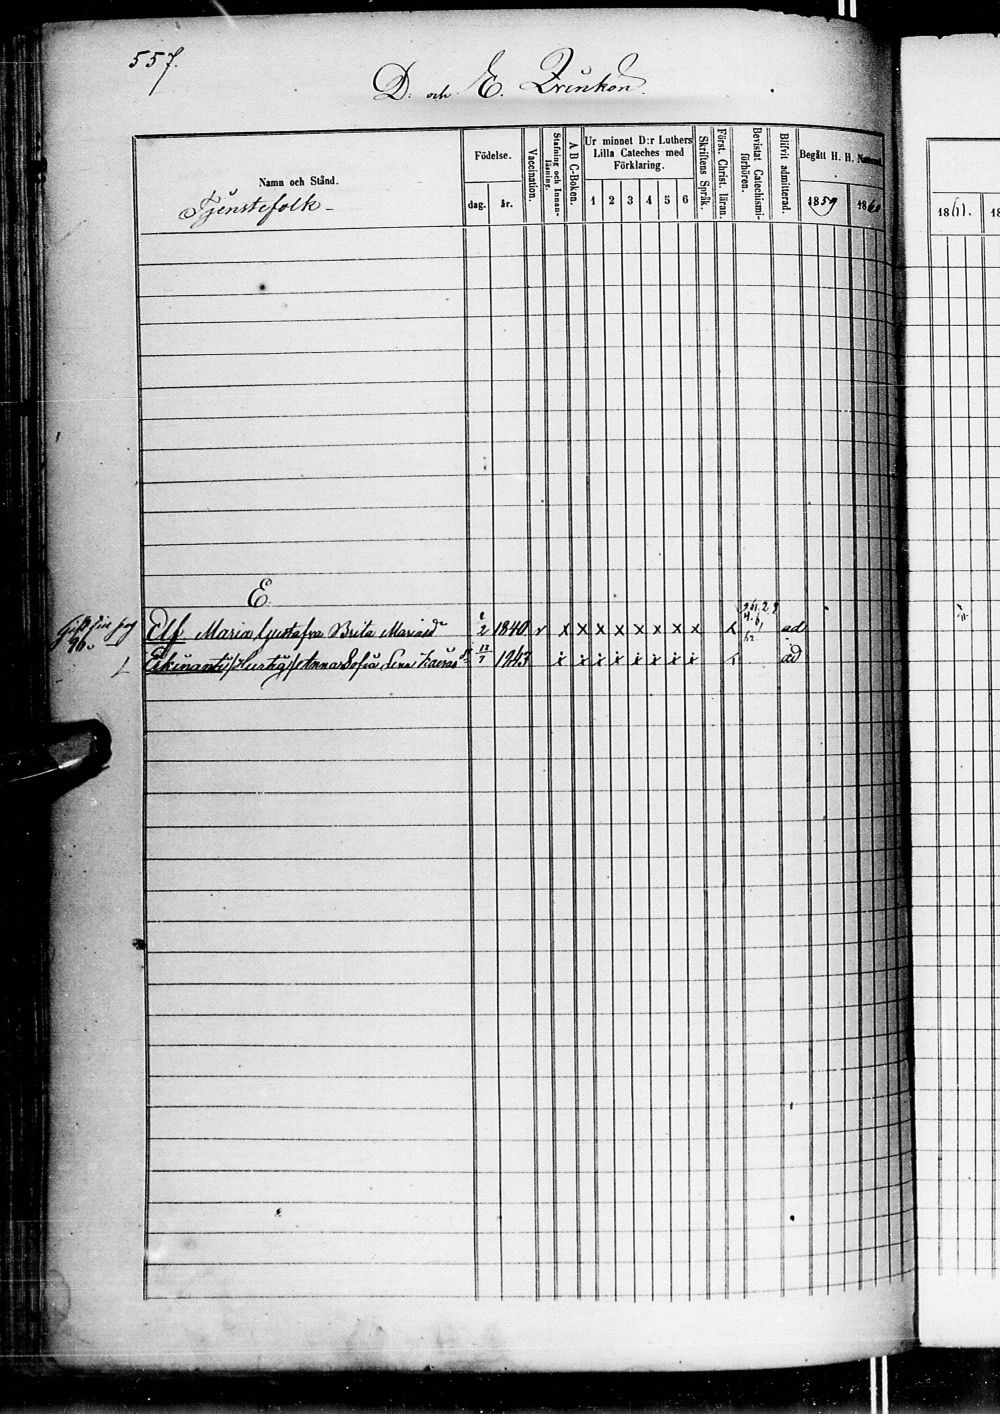 557.
D. och E. Qvinkön.
Namn och Stånd.
Tjenstefolk
Födelse.
dag. år.
Vaccination.
Stafning och Innan-
läsning.
A B C-Boken.
Ur minnet D:r Luthers
Lilla Cateches med
Förklaring.
1 2 3 4 5 6
Skriftens Språk.
Först. Christ. läran.
Bevistat Catechismi-
förhören.
Blifvit admitterad.
Begått H. H. Nattvard.
1859 1860
1861. 18
E.
Elf Maria Gustafva Brita 2 1840 v x x x x x x x x ad
Anna Sofia Lena 12/7 1843 x x x x x x x x ad